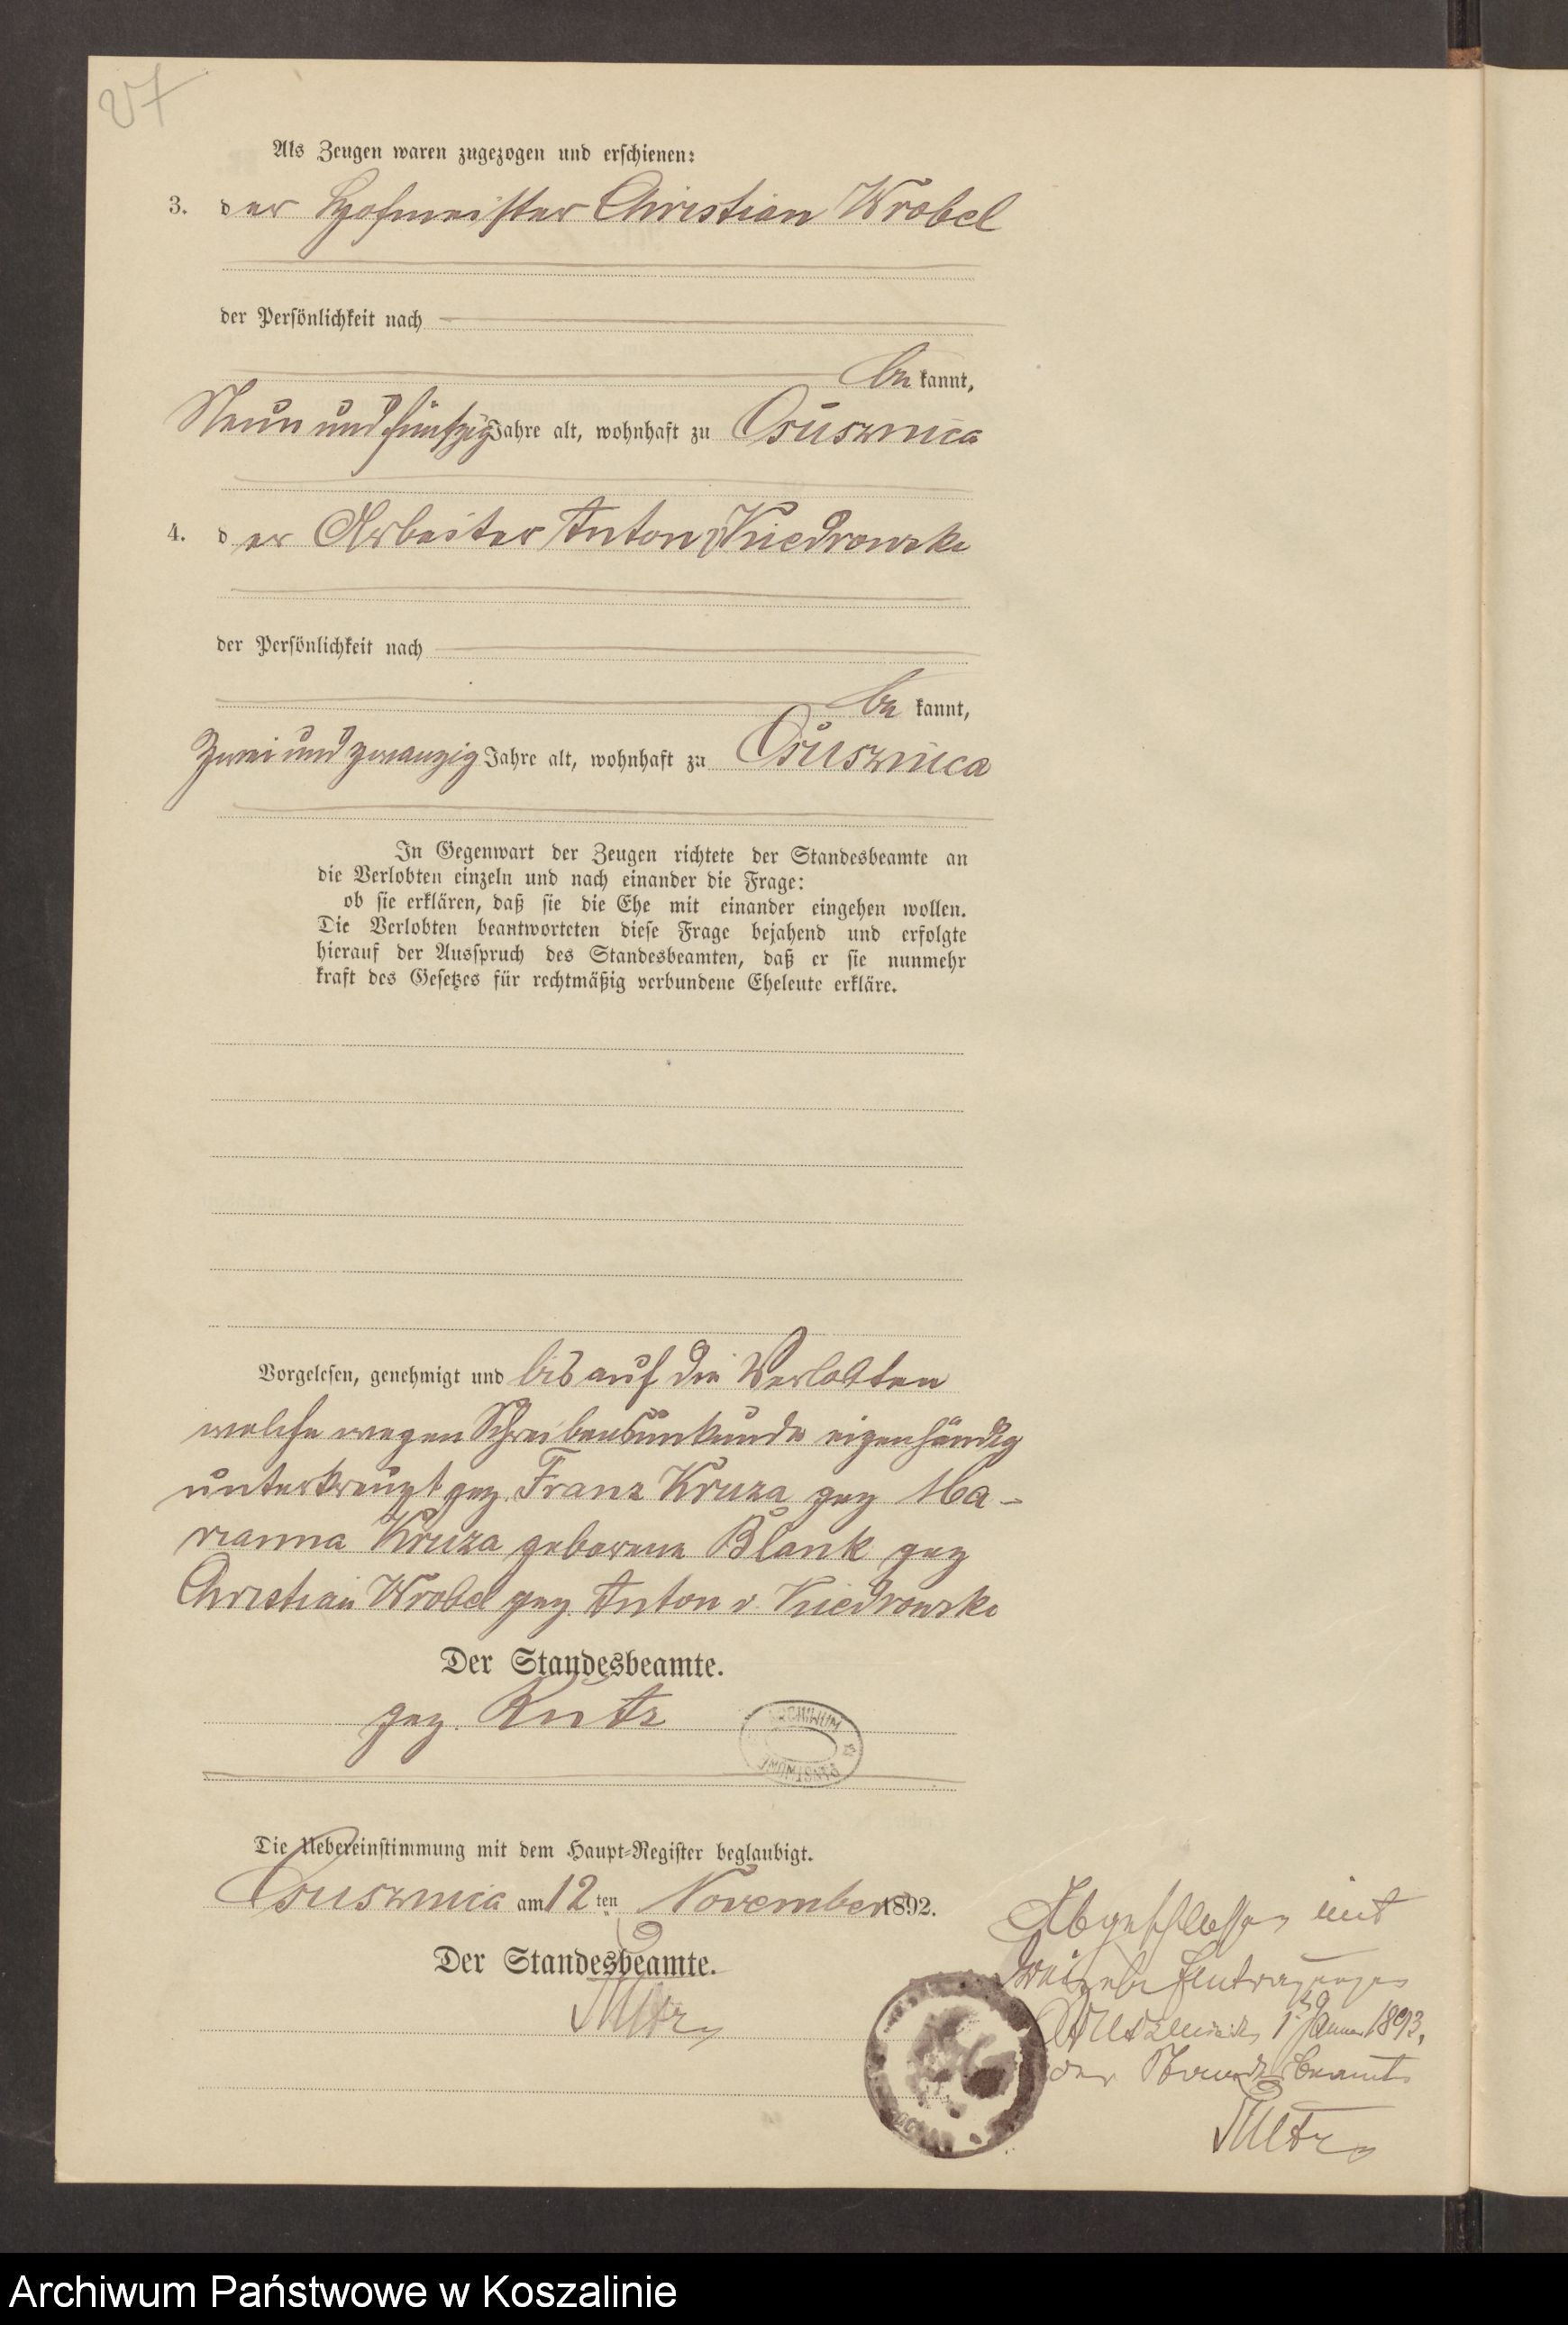 27
Als Zeugen waren zugezogen und erschienen:
3. der Hofmeister Christian Wrobel
der Persönlichkeit nach
be kannt,
Neun und fünfzig Jahre alt, wohnhaft zu Osusznica
4. der Arbeiter Anton v Kiedrowski
der Persönlichkeit nach
be kannt,
Zwei und zwanzig Jahre alt, wohnhaft zu Osusznica
In Gegenwart der Zeugen richtete der Standesbeamte an
die Verlobten einzeln und nach einander die Frage:
ob sie erklären, daß sie die Ehe mit einander eingehen wollen.
Die Verlobten beantworteten diese Frage bejahend und erfolgte
hierauf der Ausspruch des Standesbeamten, daß er sie nunmehr
kraft des Gesetzes für rechtmäßig verbundene Eheleute erkläre.
Vorgelesen, genehmigt und bis auf die Verlobten
welche wegen Schreibensunkunde eigenhändig
unterkreuzt gez. Franz Kruza gez Ma-
rianna Kruza geborene Blank gez
Christian Wrobel gez Anton v. Kiedrowski
Der Standesbeamte.
gez.
ARCHIWUM
PAŃSTWOWE
Die Uebereinstimmung mit dem Haupt-Register beglaubigt.
Osusznica am 12 ten November 1892.
Der Standesbeamte.
Abgeschlossen mit
Eintragungen
Osusznica, 1 Januar 1893.
der Standesbeamte
Archiwum Państwowe w Koszalinie